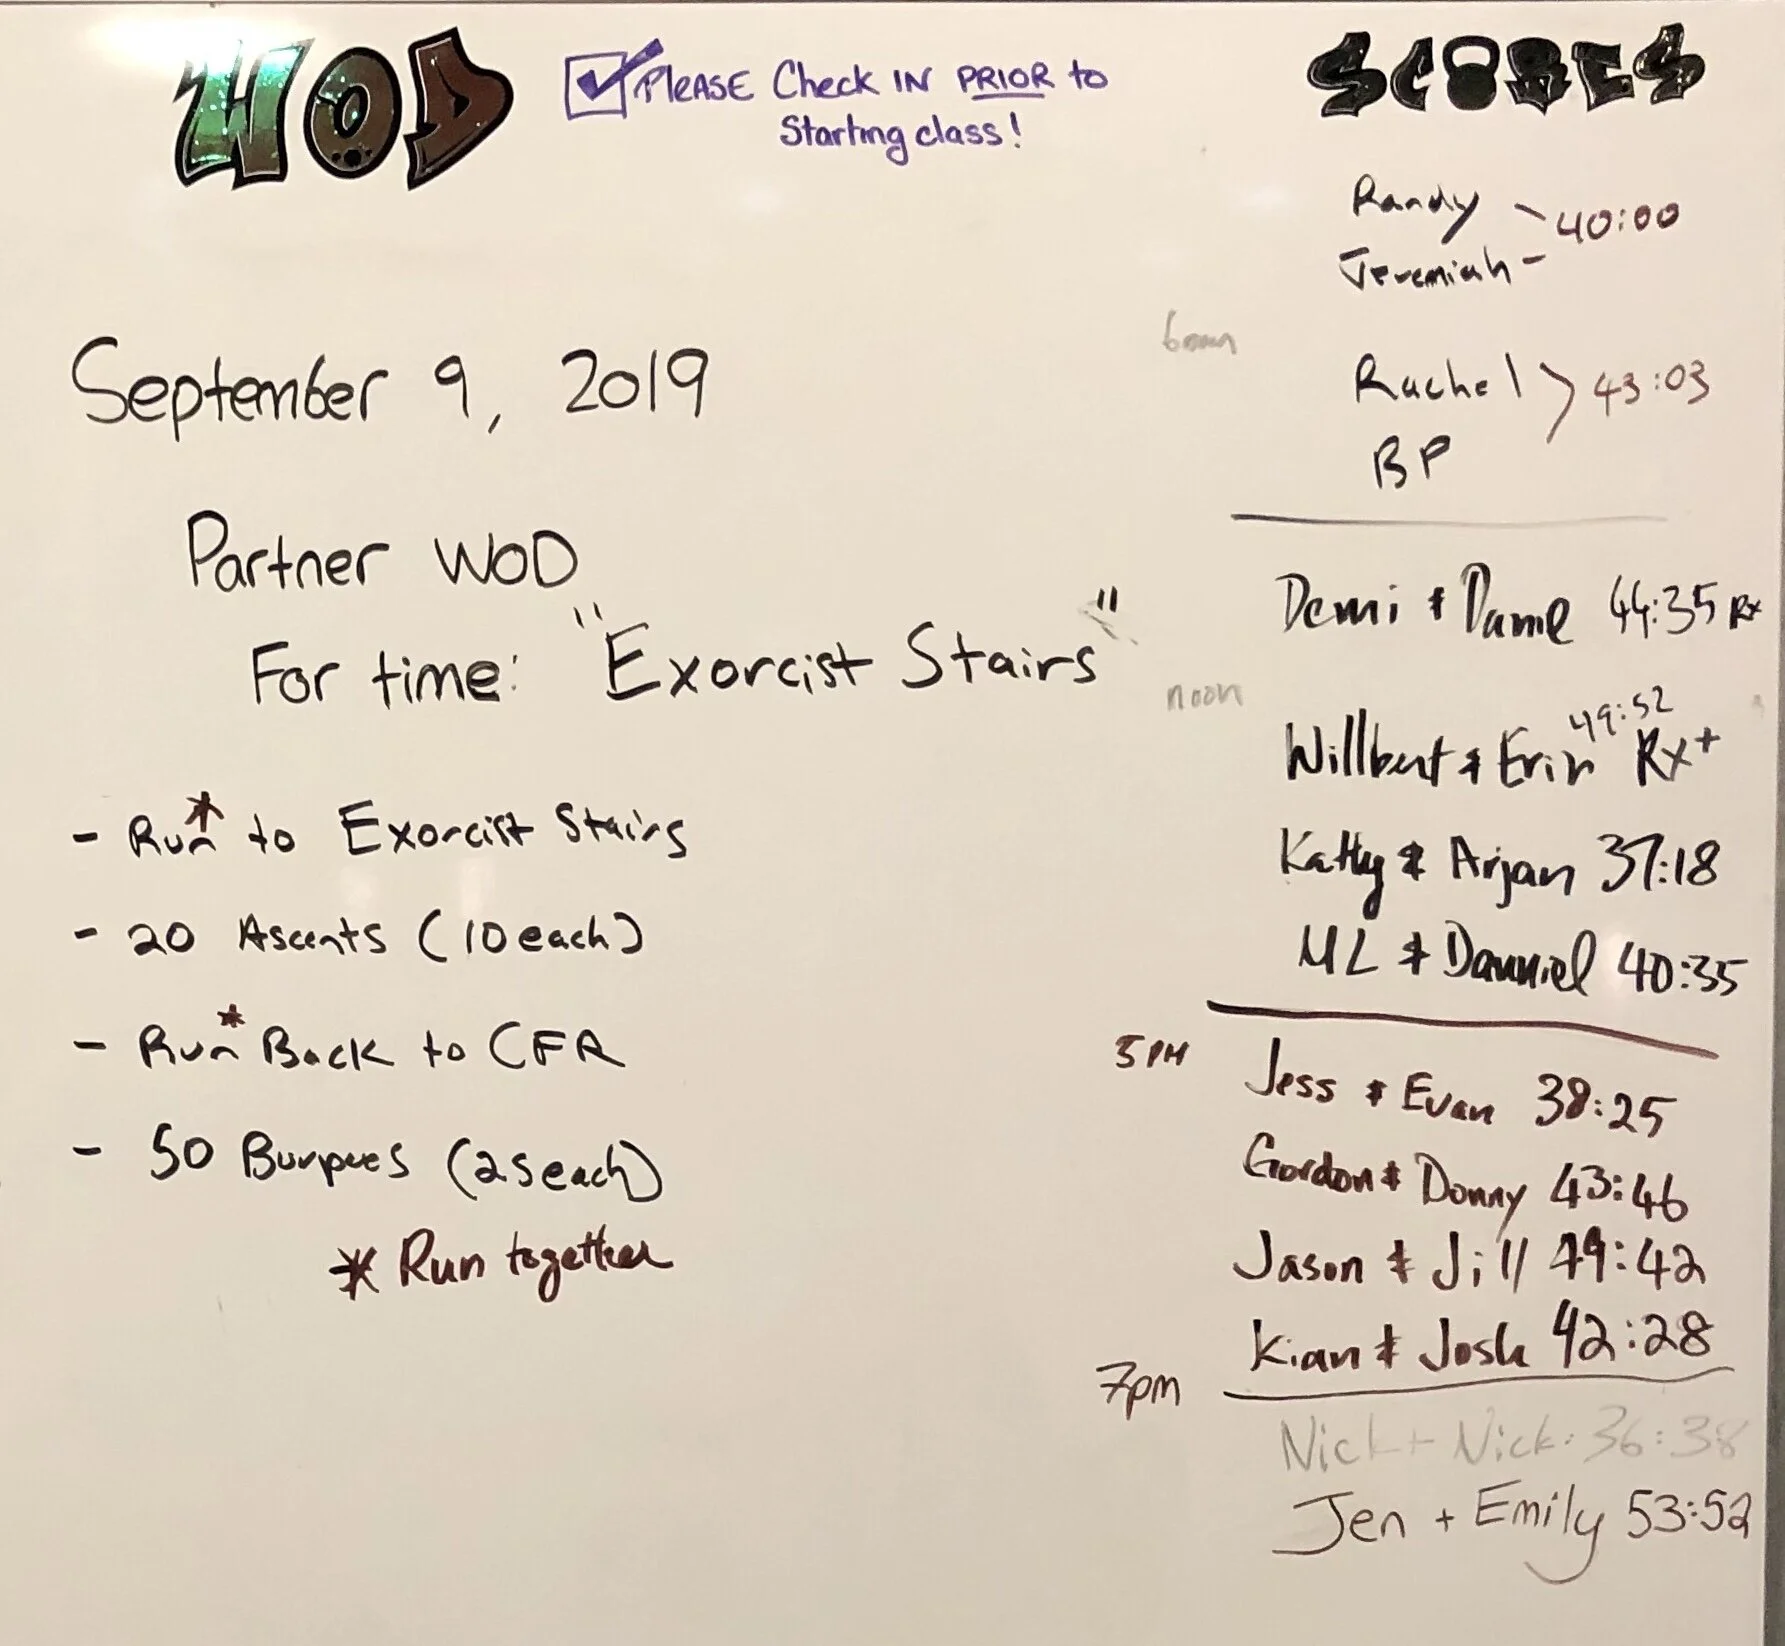 WOD
PLEASE Check IN PRIOR to
Starting class!
September 9, 2019
Partner WOD
For time: "Exorcist Stairs"
- Run* to Exorcist Stairs
- 20 Ascents (10 each)
- Run* Back to CFR
- 50 Burpees (25 each)
* Run together
SCORES
Randy
Jeremiah
40:00
Rachel
BP
43:03
Demi & 44:35 Rx
noon
49:52
Willbert & Erin Rx+
Kathy & Arjan 37:18
ML & Danniel 40:35
5 PM
Jess & Evan 38:25
Gordon & Donny 43:46
Jason & Jill 49:42
Kian & Josh 42:28
7pm
Nick + Nick: 36:38
Jen + Emily 53:52